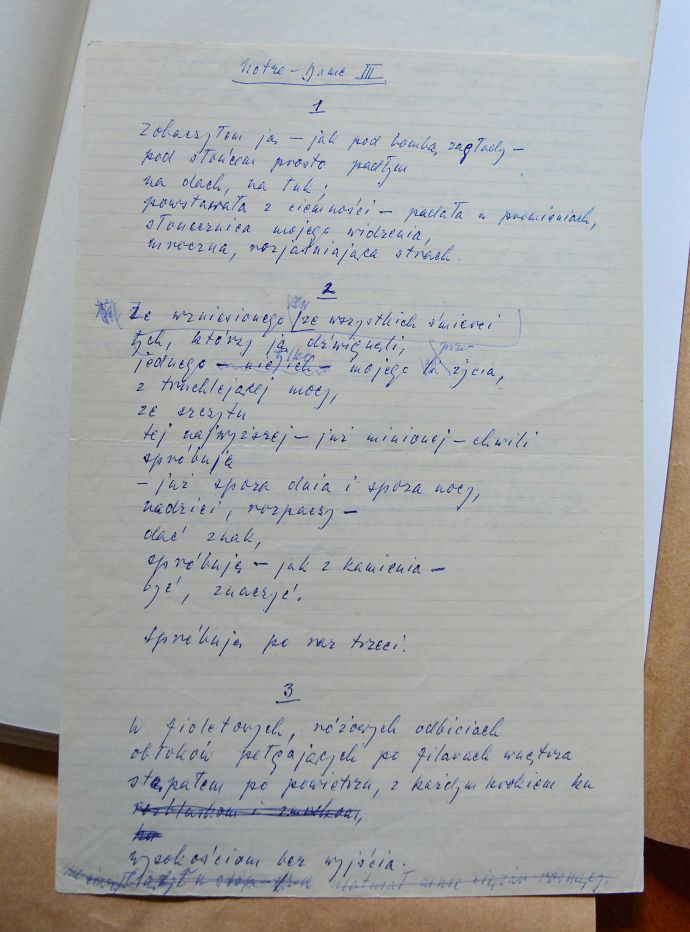 Notre-Dame III
1
Zobaczyłem ją – jak pod bombą zagłady –
pod słońcem prosto padłym
na dach, na łuk;
powstawała z ciemności – padała w promieniach,
słonecznica mojego widzenia,
mroczna, rozjaśniająca strach.
2
Ze wzniesionego ze wszystkich śmierci
tych, którzy ją dźwignęli,
tylko przez
jednego z nich mojego życia,
z truchlejącej mocy,
ze szczytu
tej najwyższej – już minionej – chwili
spróbuję
– już spoza dnia i spoza nocy,
nadziei, rozpaczy –
dać znak,
spróbuję – jak z kamienia –
być, znaczyć.
Spróbuję po raz trzeci.
3
W fioletowych, różowych odbiciach
obłoków pełgających po filarach wnętrza
stąpałem po powietrzu, z każdym krokiem ku
rozblaskom i zmrokom,
ku
wysokościom bez wyjścia.
mnie ciężar rosnący.